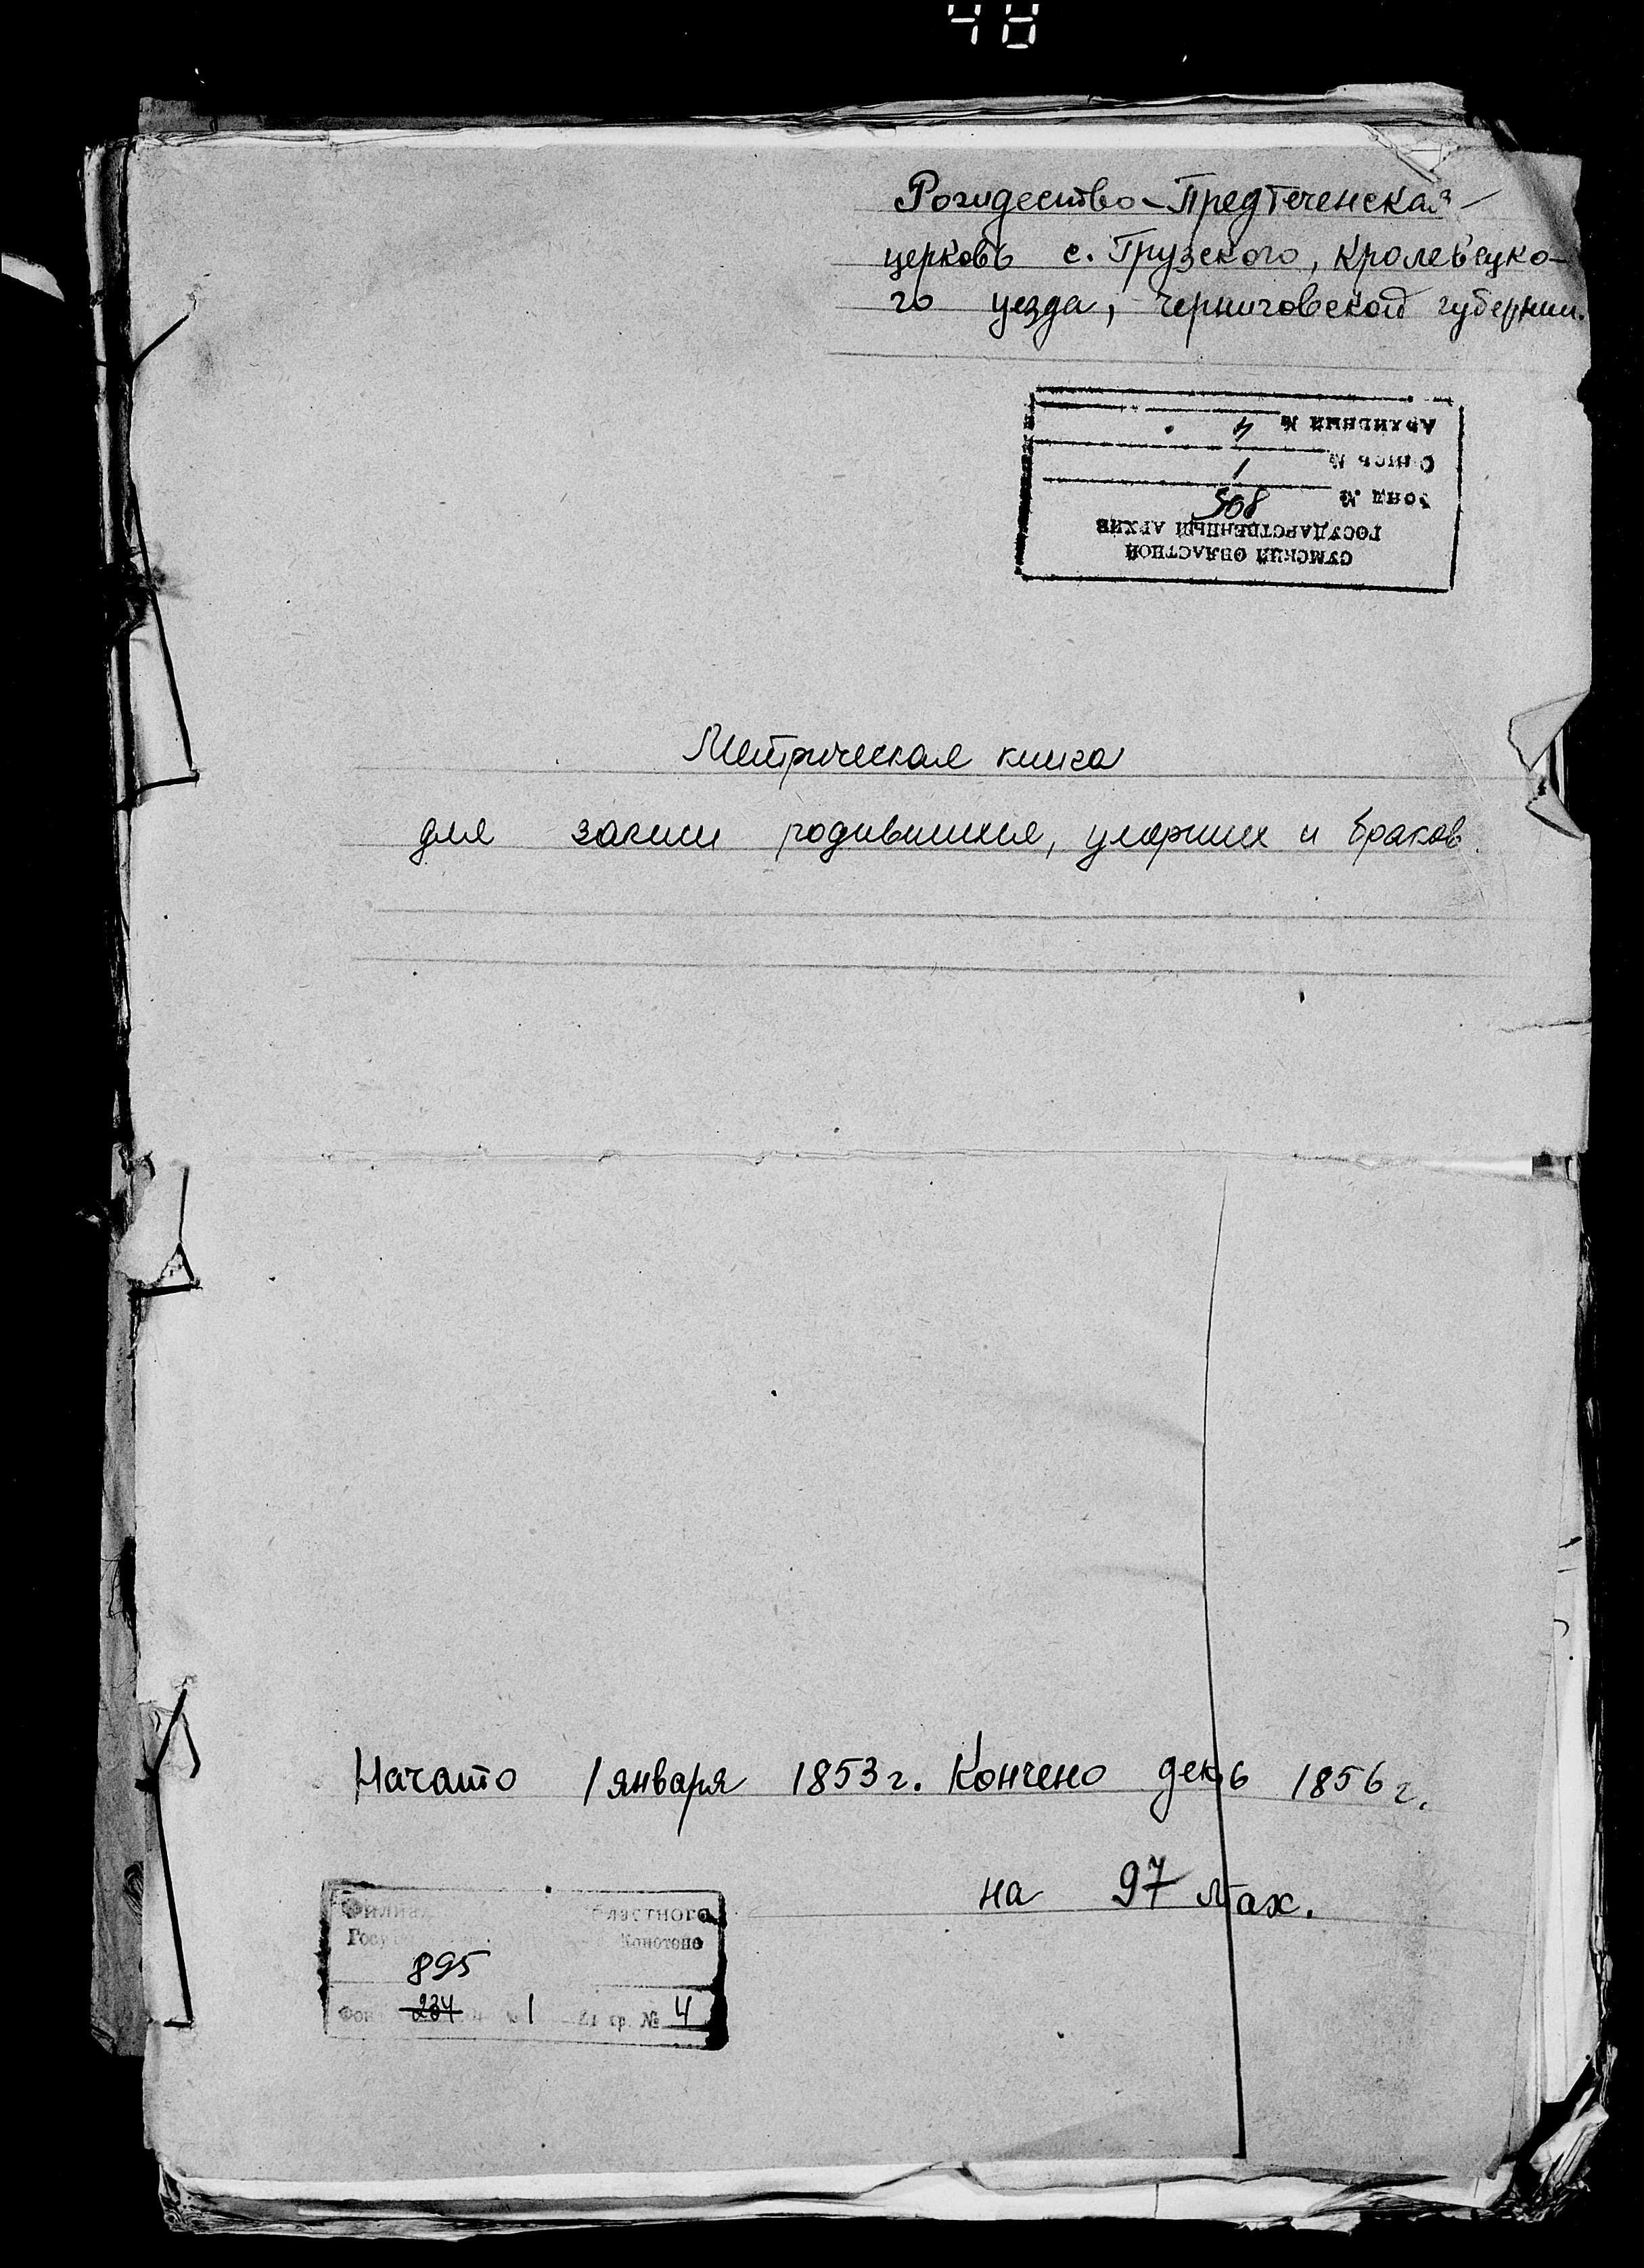 48
Рождество-Предтеченская
церковь с. Грузского, Кролевецко-
го уезда, Черниговской губернии.
СУМСКИЙ ОБЛАСТНОЙ
ГОСУДАРСТВЕННЫЙ АРХИВ
ФОНД № 508
Опись № 1
АРХИВНЫЙ № 4
Метрическая книга
для записи родившихся, умерших и браков.
Начато 1 января 1853 г. Кончено дек 1856 г.
на 97 лах.
Филиал областного
Конотопе
895
Фон 234 1 № 4